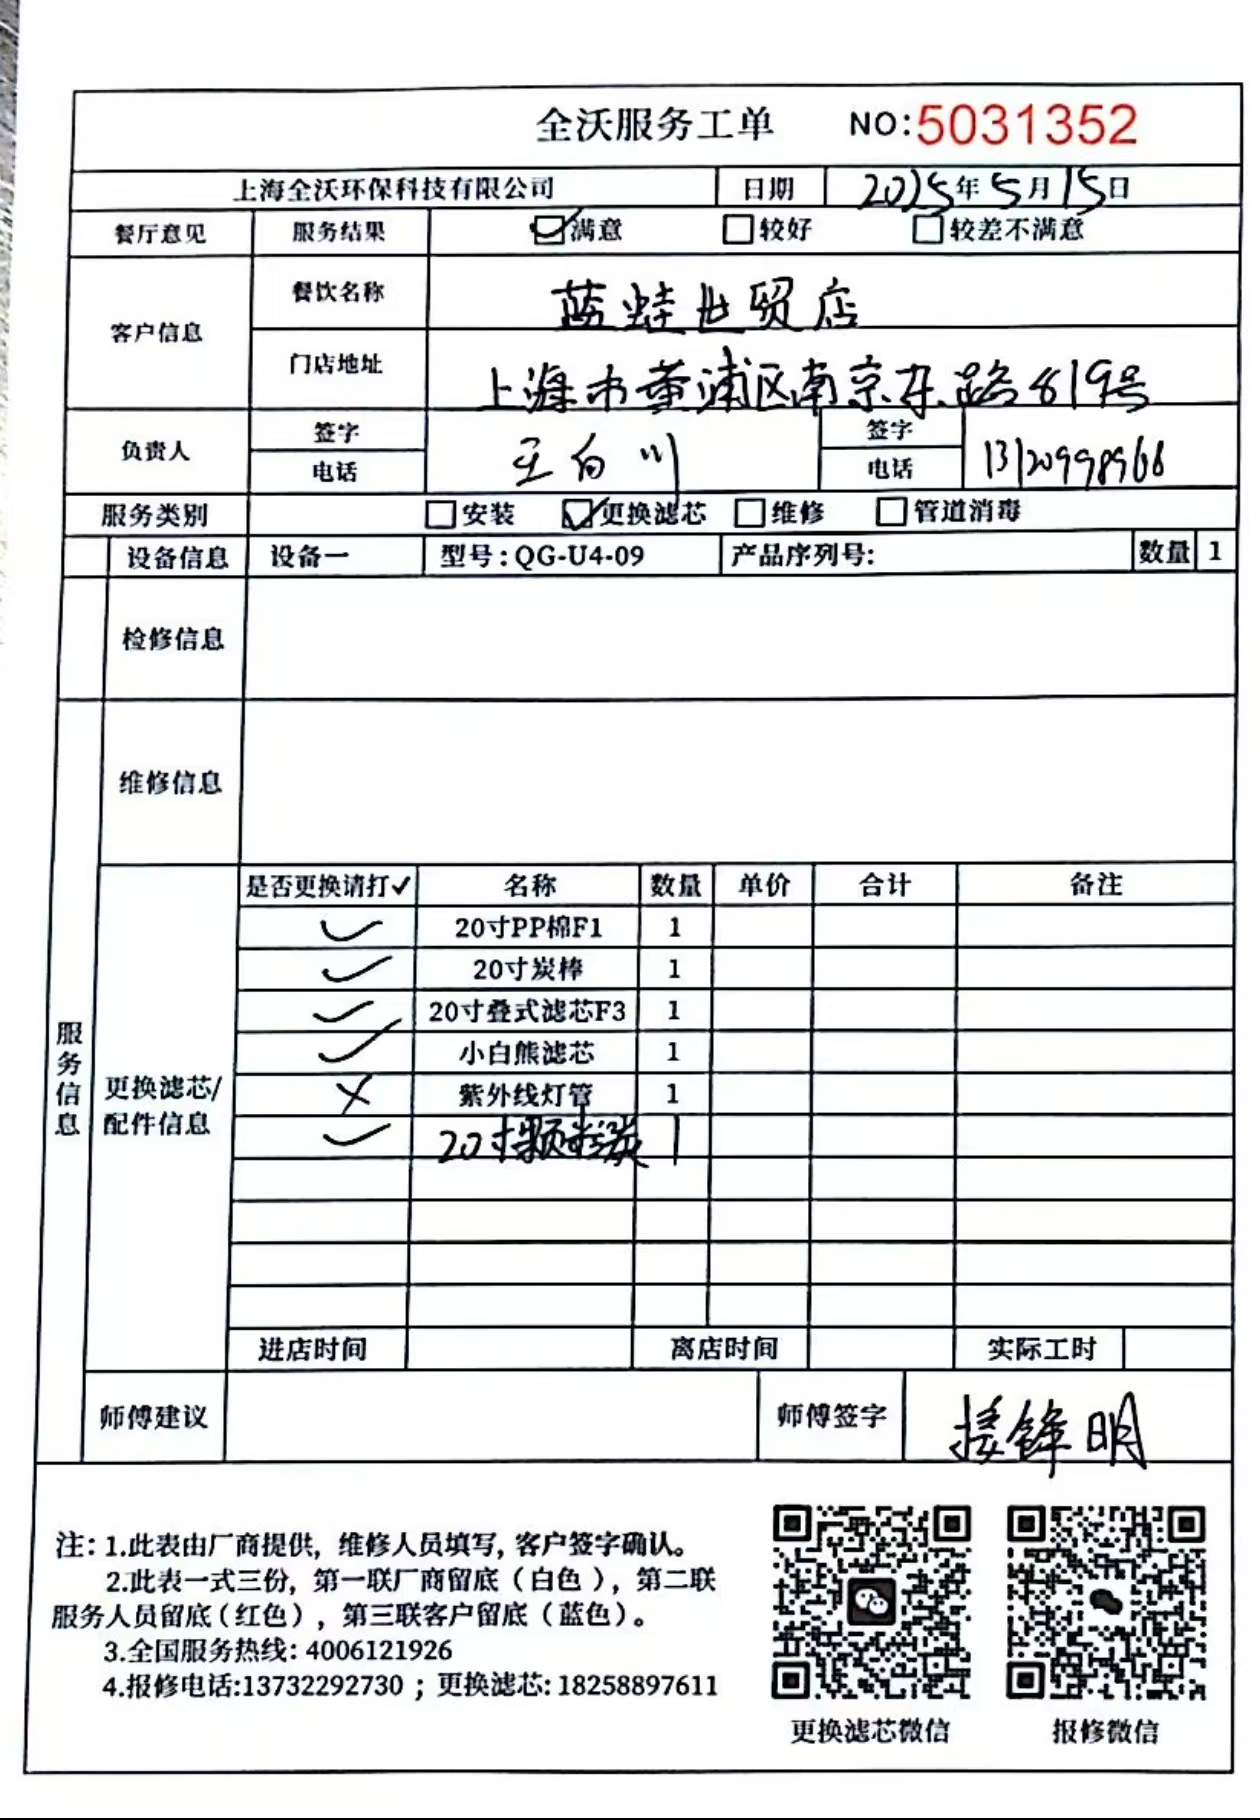 全沃服务工单 NO:5031352
上海全沃环保科技有限公司 日期 2025年5月15日
餐厅意见 服务结果 ☑满意 ☐较好 ☐较差不满意
客户信息 餐饮名称 蓝蛙世贸店
门店地址 上海市黄浦区南京东路819号
负责人 签字 电话 王向川 签字 电话 13120998966
服务类别 ☐安装 ☑更换滤芯 ☐维修 ☐管道消毒
设备信息 设备一 型号:QG-U4-09 产品序列号: 数量 1
检修信息
维修信息
服务信息
更换滤芯/配件信息
是否更换请打✓ 名称 数量 单价 合计 备注
✓ 20寸PP棉F1 1
✓ 20寸炭棒 1
✓ 20寸叠式滤芯F3 1
✓ 小白熊滤芯 1
× 紫外线灯管 1
✓ 20寸颗粒炭 1
进店时间 离店时间 实际工时
师傅建议 师傅签字 锋明
注: 1.此表由厂商提供, 维修人员填写, 客户签字确认。
2.此表一式三份, 第一联厂商留底(白色), 第二联
服务人员留底(红色), 第三联客户留底(蓝色)。
3.全国服务热线: 4006121926
4.报修电话:13732292730 ; 更换滤芯: 18258897611
更换滤芯微信 报修微信